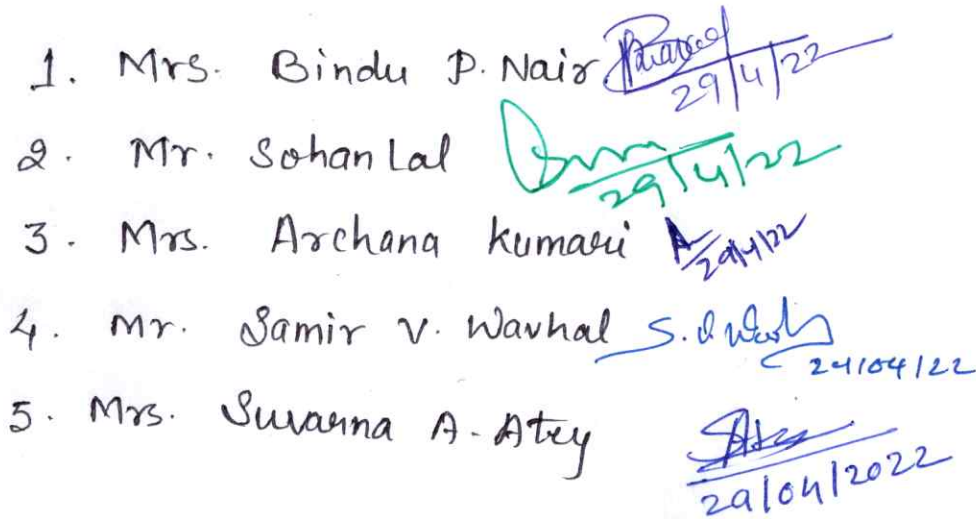 1. Mrs. Bindu P. Nair 29/4/22
2. Mr. Sohan Lal 29/4/22
3. Mrs. Archana Kumari A 29/4/22
4. Mr. Samir V. Wavhal 29/04/22
5. Mrs. Suvarna A. Atey 29/04/2022